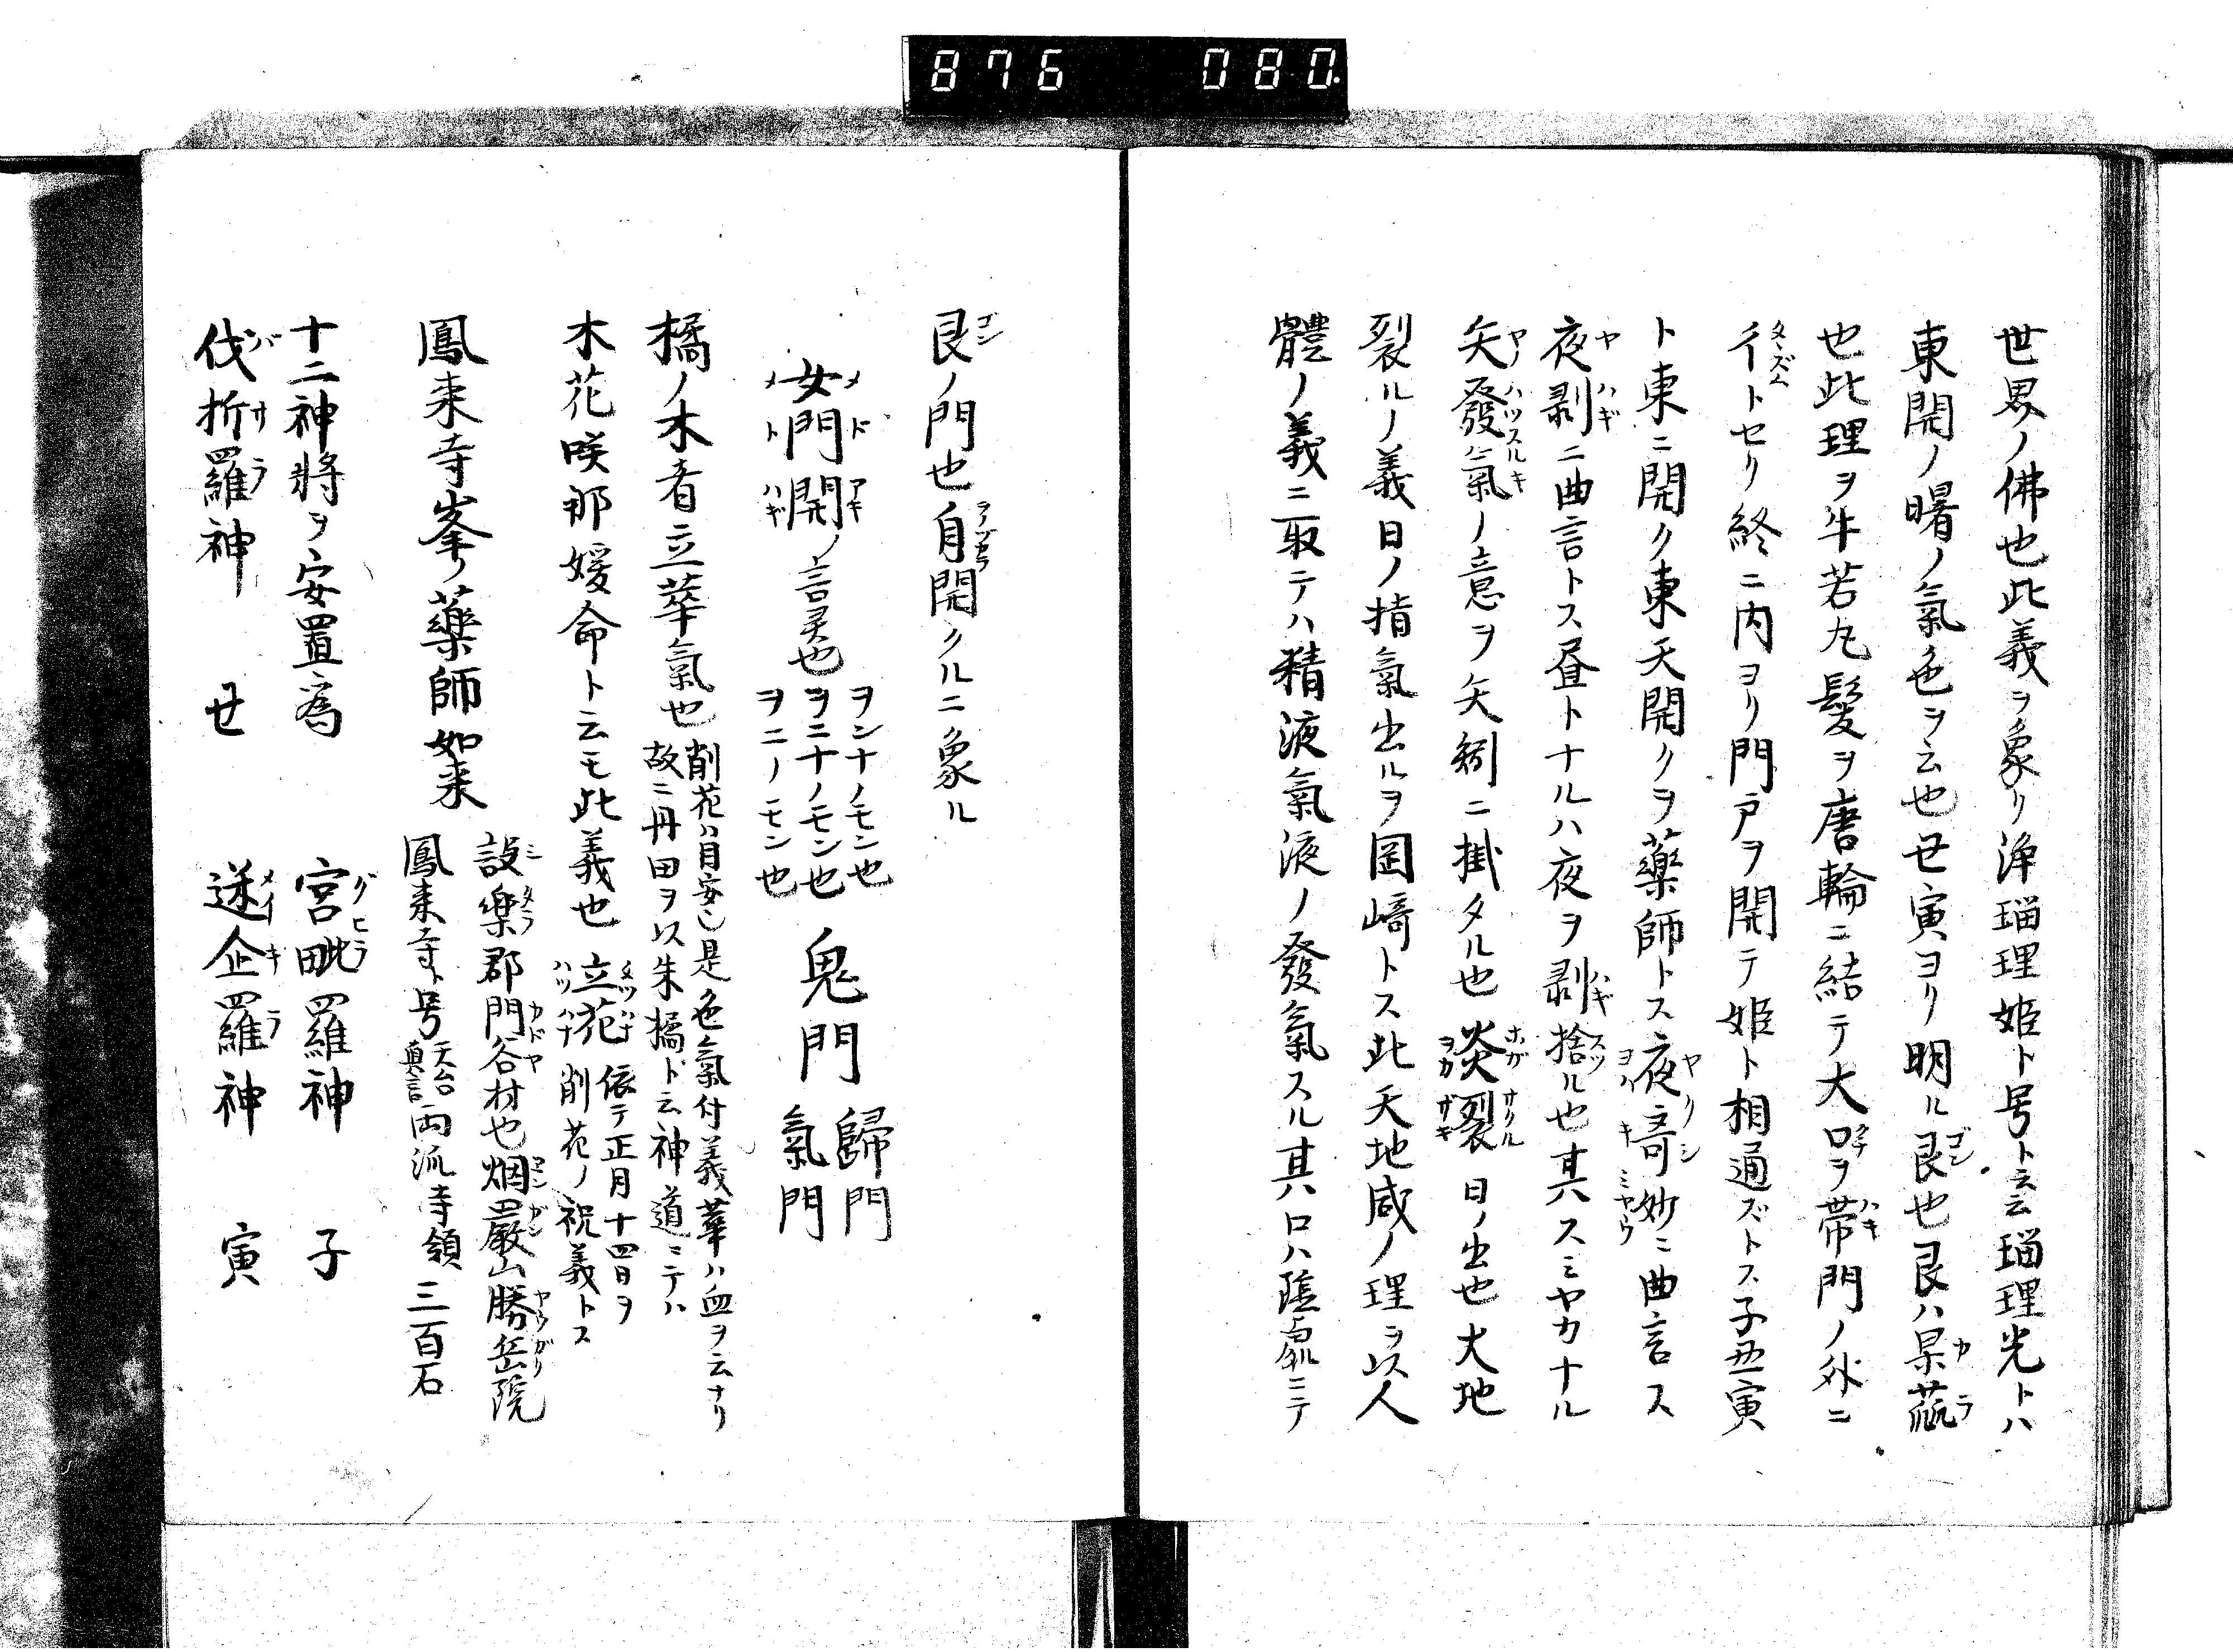 876 080.
世界ノ佛也此義ヲ象リ浄瑠理姫ト号ト云云瑠理光トハ
東開ノ曙ノ氣色ヲ云也丗寅ヨリ明ル艮也艮ハ杲蓏
也此理ヲ牛若丸髪ヲ唐輪ニ結テ大口ヲ帯門ノ外ニ
イトセリ終ニ内ヨリ門戸ヲ開テ姫ト相通ズトス子丑寅
ト東ニ開ク東天開クヲ藥師トス夜竒妙ニ曲言ス
夜剥ニ曲言トス昼トナルハ夜ヲ剥捨ル也其スミヤカナル
矢發氣ノ意ヲ矢矧ニ掛タル也 炎裂 日ノ出也大地
裂ルノ義日ノ指氣出ルヲ岡﨑トス此天地咸ノ理ヲ以人
體ノ義ニ取テハ精液氣液ノ發氣スル其口ハ陰
艮ノ門也自開クルニ象ル
女門開ノ言灵也 ヲンナノモン也 ヲニナノモン也 ヲニノモン也 鬼門 歸門 氣門
橘ノ木者立華氣也 削花ハ目安シ是色氣付義華ハ血ヲ云ナリ
故ニ丹田ヲ以朱橘ト云神道ニテハ
木花咲那媛命ト云モ此義也 立花 依テ正月十四日ヲ
削花ノ祝義トス
鳳来寺峯ノ藥師如来 設楽郡門谷村也烟巖山勝岳院
鳳来寺ト号 天台真言両流寺領三百石
十二神將ヲ安置為 宮毗羅神 子
伐折羅神 丑 迷企羅神 寅